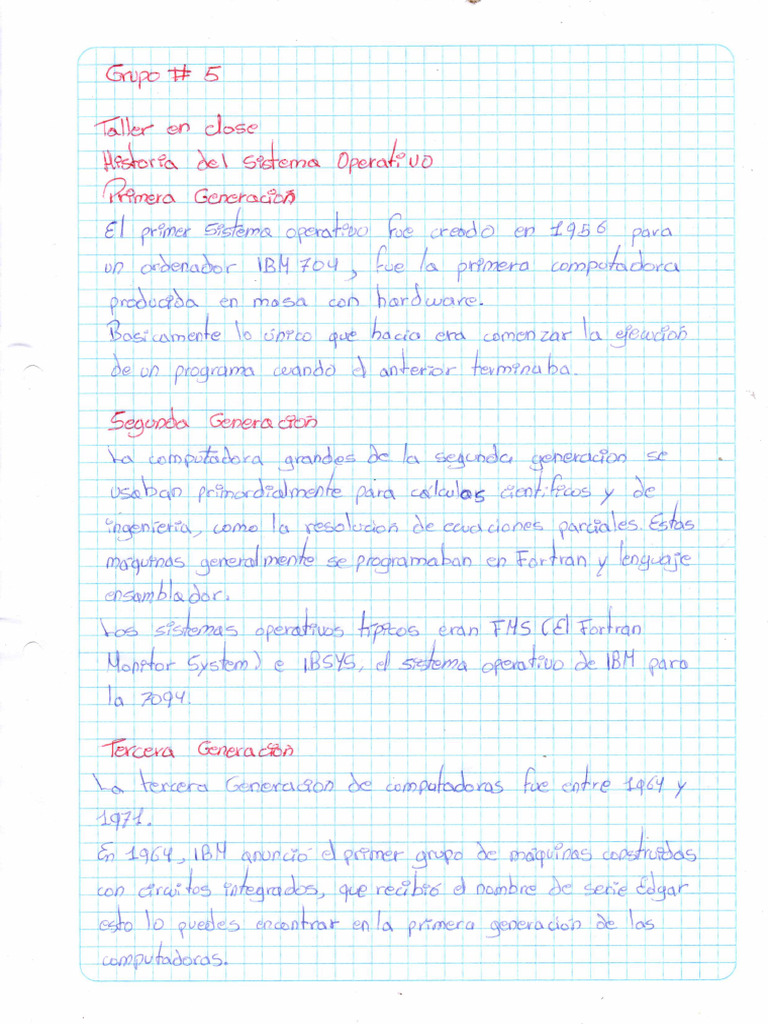 Grupo # 5
Taller en clase
Historia del Sistema Operativo
Primera Generación
El primer sistema operativo fue creado en 1956 para
un ordenador IBM 704, fue la primera computadora
producida en masa con hardware.
Basicamente lo único que hacia era comenzar la ejecucion
de un programa cuando el anterior terminaba.
Segunda Generación
La computadora grandes de la segunda generacion se
usaban primordialmente para cálculos cientificos y de
ingenieria, como la resolucion de ecuaciones parciales. Estas
maquinas generalmente se programaban en Fortran y lenguaje
ensamblador.
Los sistemas operativos tipicos eran FMS (El Fortran
Monitor System) e IBSYS, el sistema operativo de IBM para
la 7094.
Tercera Generación
La tercera Generacion de computadoras fue entre 1964 y
1971.
En 1964, IBM anunció el primer grupo de maquinas construidas
con circuitos integrados, que recibió el nombre de serie Edgar
esto lo puedes encontrar en la primera generación de las
computadoras.